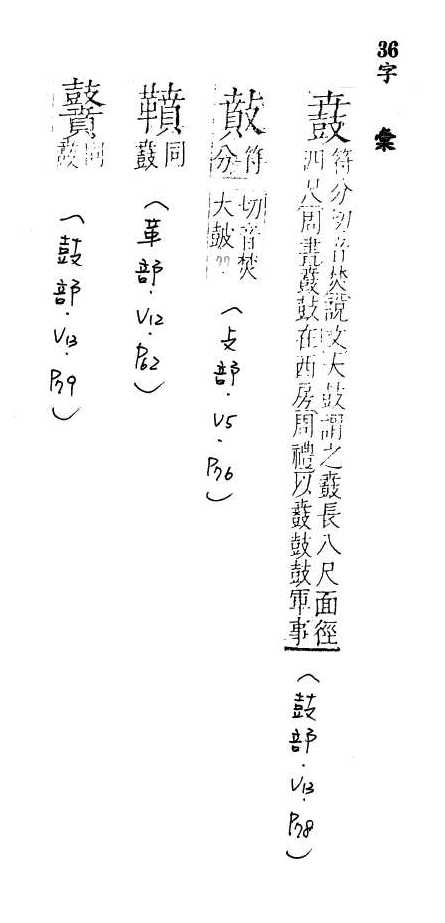 36字彙
鼖
符分切音焚說文大鼓謂之鼖長八尺面徑
四尺周書鼖鼓在西房周禮以鼖鼓鼓軍事
(鼓部.V13.P78)
符切音焚
分大鼓
(攴部.V5.P76)
鞼
同
鼖
(革部.V12.P62)
同
鼖
(鼓部.V13.P79)